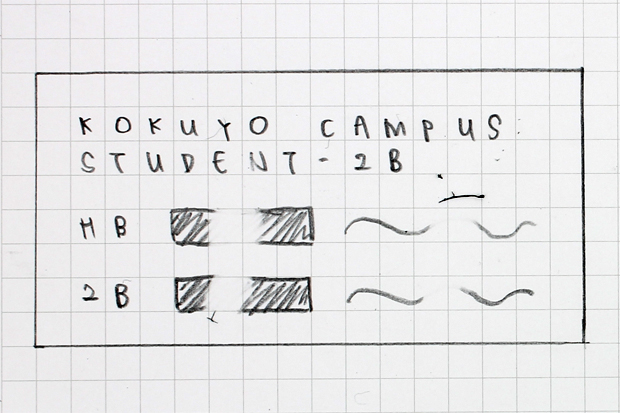 KOKUYO CAMPUS
STUDENT-2B
HB
2B